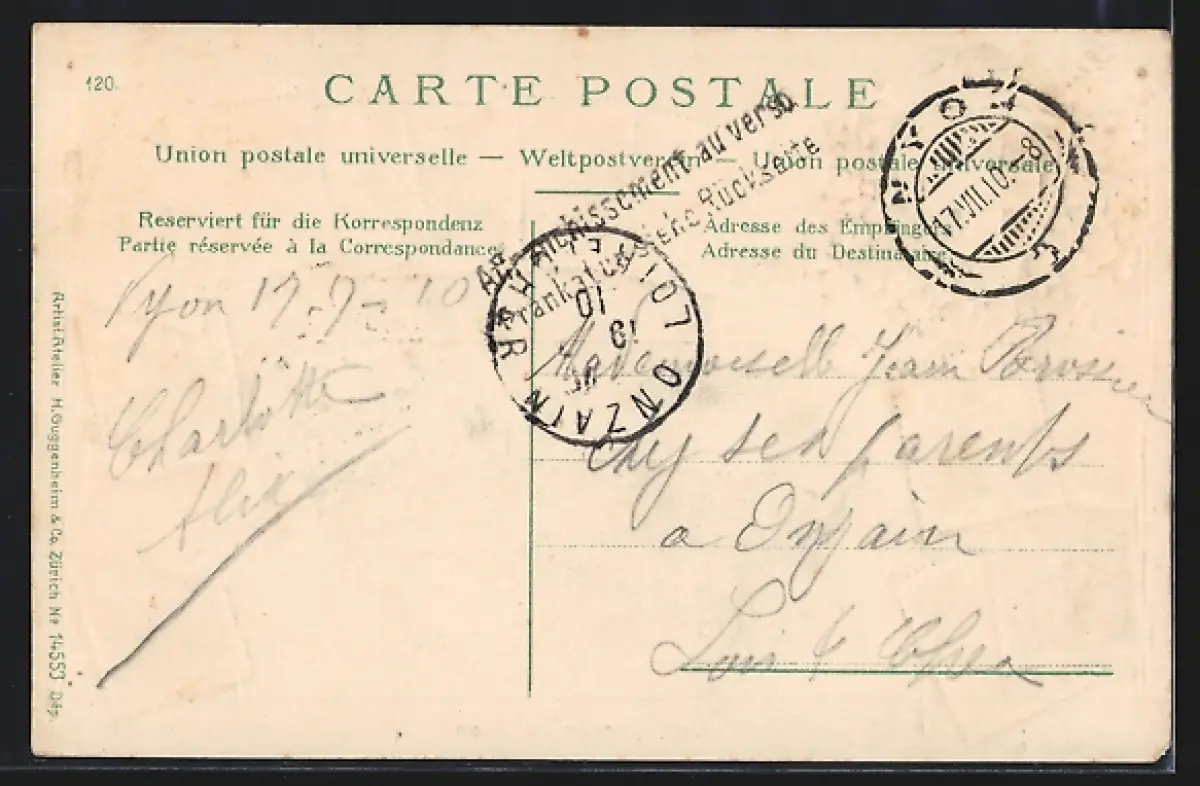 120.
CARTE POSTALE
Union postale universelle — Weltpostverein — Union postale universale
Affranchissement au verso
Frankatur siehe Rückseite
NYON
17.VII.10.-8
Reserviert für die Korrespondenz
Partie réservée à la Correspondance
Adresse des Empfängers
Adresse du Destinataire
ONZAIN
LOIR
10
19
Nyon 17-7-10
Charlotte
Mademoiselle
chez ses parents
a Onzain
Loir & Cher
Artist. Atelier H. Guggenheim & Co., Zürich No 14553 Dép.